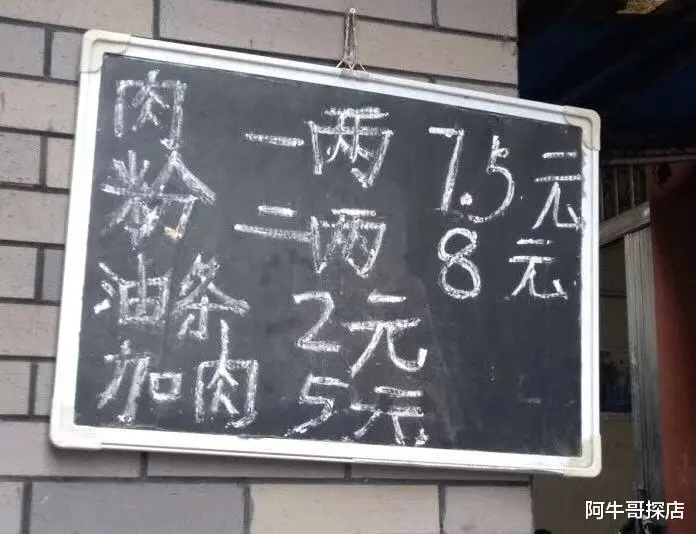 肉 一两 7.5元
粉 二两 8元
油条 2元
加肉 5元
阿牛哥探店